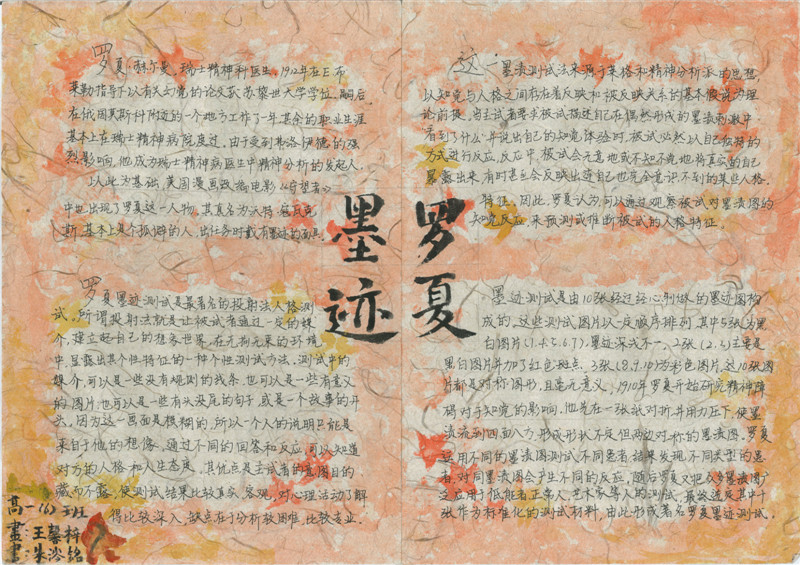 罗夏·赫尔曼，瑞士精神科医生，1912年在E·布
莱勒指导下以有关幻觉的论文获苏黎世大学学位，嗣后
在俄国莫斯科附近的一个地方工作了一年其余的职业生涯
基本上在瑞士精神病院度过，由于受到弗洛伊德的强
烈影响，他成为瑞士精神病医生中精神分析的发起人。
以此为基础，美国漫画改编电影《守望者》
中也出现了罗夏这一人物，其真名为沃特·寇瓦克
斯，基本上是个孤僻的人，出任务时戴有墨迹的面具。
这一墨渍测试法来源于人格和精神分析派的思想，
以知觉与人格之间存在着反映和被反映关系的基本假说为理
论前提，当主试者要求被试描述自己在偶然形成的墨渍刺激中
看到了什么并说出自己的知觉体验时，被试必然以自己独特的
方式进行反应，反应中，被试会无意地或不知不觉地将真实的自己
暴露出来，有时甚至会反映出连自己也完全意识不到的某些人格
特征。因此，罗夏认为，可以通过观察被试对墨渍图的
知觉反应，来预测或推断被试的人格特征。
罗夏
墨迹
罗夏墨迹测试是最著名的投射法人格测
试。所谓投射法就是让被试者通过一定的媒
介，建立起自己的想象世界，在无拘无束的环境
中，显露出其个性特征的一种个性测试方法。测试中的
媒介，可以是一些没有规则的线条，也可以是一些有意义
的图片，也可以是一些有头没尾的句子，或是一个故事的开
头，因为这一画面是模糊的，所以一个人的说明只能是
来自于他的想像。通过不同的回答和反应，可以知道
对方的人格和人生态度。其优点是主试者的意图目的
藏而不露，使测试结果比较真实、客观，对心理活动了解
得比较深入，缺点在于分析较困难，比较专业。
墨迹测试是由10张经过精心制作的墨迹图构
成的。这些测试图片以一定顺序排列，其中5张为黑
白图片(1.4.5.6.7)，墨迹深浅不一，2张(2.3)主要是
黑白图片并加了红色斑点，3张(8.9.10)为彩色图片，这10张图
片都是对称图形，且毫无意义。1910年罗夏开始研究精神障
碍对于知觉的影响。他先在一张纸对折并用力压下，使墨
渍流到四面八方形成形状不定但两边对称的墨渍图。罗夏
运用不同的墨渍图测试不同患者，结果发现不同类型的患
者，对同墨渍图会产生不同的反应，随后罗夏又把众多墨渍图广
泛应用于低能者正常人、艺术家等人的测试，最终选定其中十
张作为标准化的测试材料，由此形成著名罗夏墨迹测试。
高一(6)班
画：王馨梓
书：朱洛铭